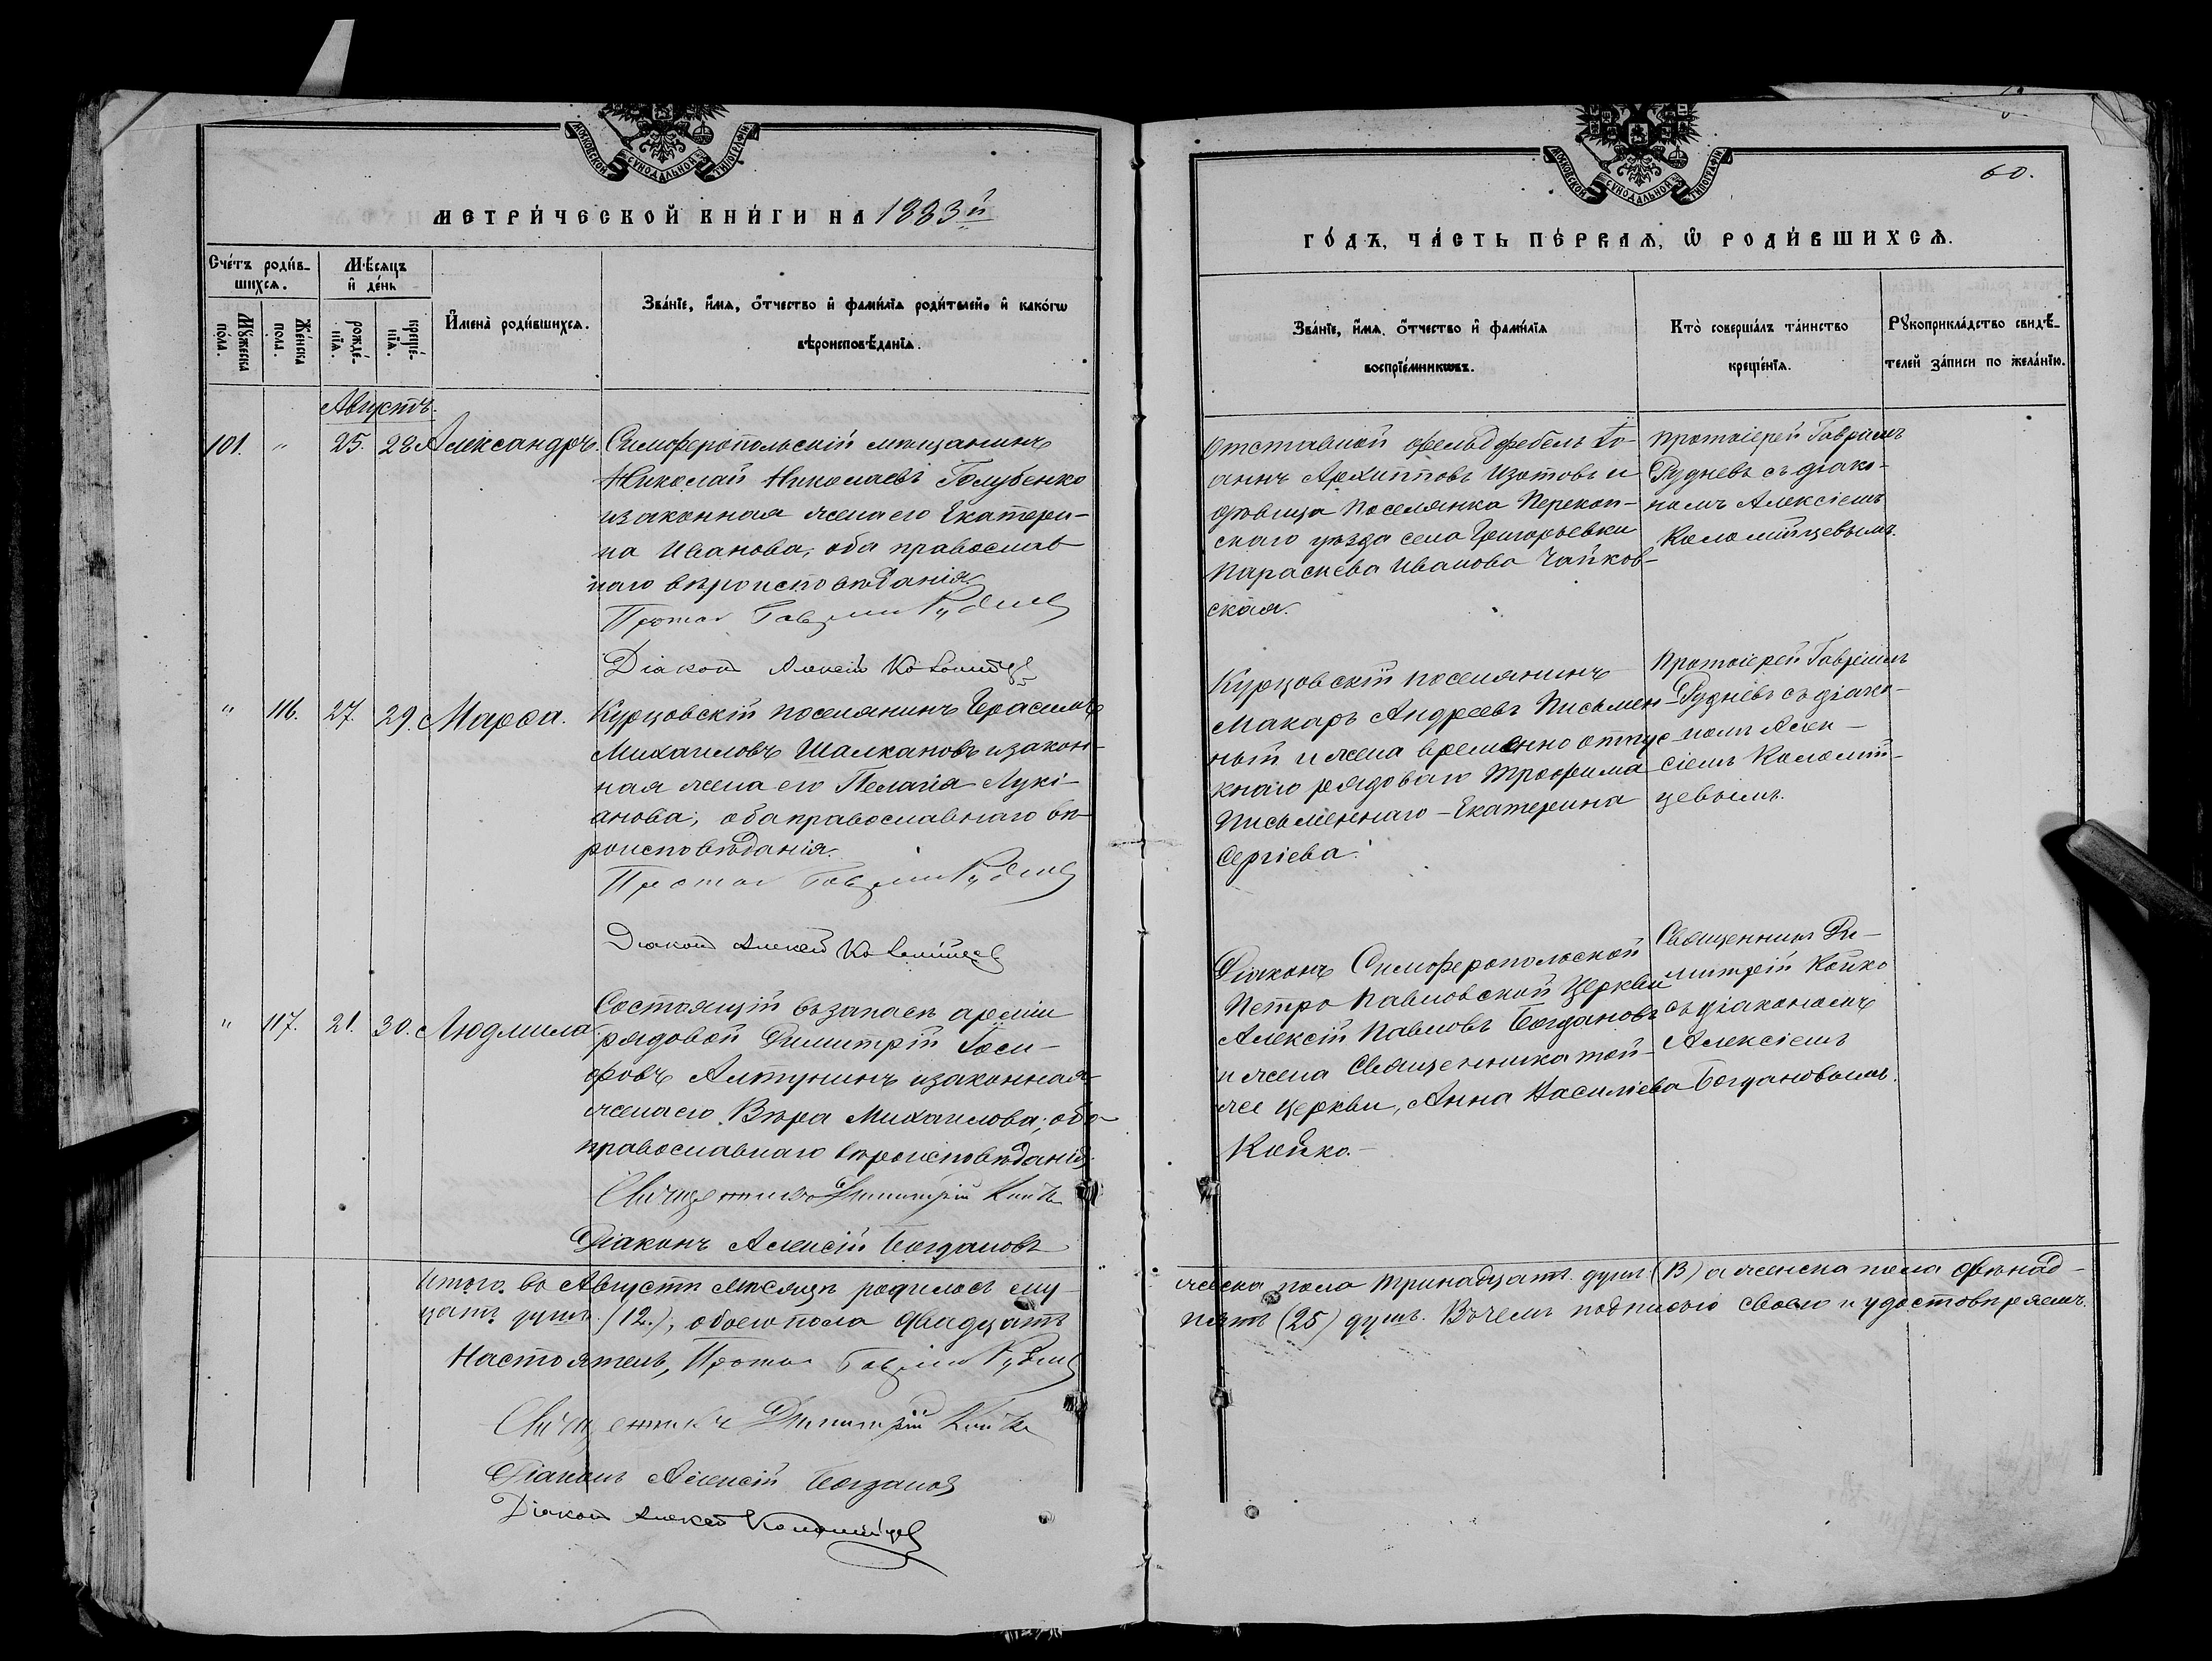 МОСКОВСКОЙ СУНОДАЛЬНОЙ ТИПОГРАФІИ
МЕТРИ́ЧЕСКОЙ КНИ́ГИ НА 1883й
Сче́тъ роди́в-
шихсѧ.
Мѣ́сѧцъ
и҆ де́нь
Мꙋ́жеска по́ла.
Же́нска по́ла.
рожде́-нїѧ.
креще́-нїѧ.
И҆мена̀ роди́вшихсѧ.
Зва́нїе, и҆́мѧ, ѻ҆́тчество и҆ фами́лїѧ роди́телей, и҆ како́гѡ
вѣроисповѣ́данїѧ.
Августъ.
101. " 25. 28 Александръ.
Симферопольскій мѣщанинъ
Николай Николаевъ Голубенко
и законная жена его Екатери-
на Иванова, оба православ
наго вѣроисповѣданія.
Протоі Гавріилъ Рудневъ
Діаконъ Алексій Коломійцевъ
" 116. 27. 29. Марѳа.
Курцовскій поселянинъ Герасимъ
Михаиловъ Шалкановъ и закон-
ная жена его Пелагія Лукі-
анова, оба православнаго вѣ-
роисповѣданія.
Протоі Гавріилъ Рудневъ
Діаконъ Алексій Коломійцевъ
" 117. 21. 30. Людмила
Состоящій въ запасѣ арміи
рядовой Димитрій Іоси-
фовъ Алтунинъ и законная
жена его Вѣра Михаилова, оба
православнаго вѣроисповѣданія.
Священникъ Димитрій Койко
Діаконъ Алексій Богдановъ
Итого въ Августѣ мѣсяцѣ родилось му-
цать душъ (12.), обоего пола двадцать
Настоятель, Протоі Гавріилъ Рудневъ
Священникъ Димитрій Койко
Діаконъ Алексій Богдановъ
Діаконъ Алексій Коломійцевъ
60.
МОСКОВСКОЙ СУНОДАЛЬНОЙ ТИПОГРАФІИ
ГО́ДЪ, ЧА́СТЬ ПЕ́РВАѦ, Ѡ҆ РОДИ́ВШИХСѦ.
Зва́нїе, и҆́мѧ, ѻ҆́тчество и҆ фами́лїѧ
воспрїе́мникѡвъ.
Кто̀ соверша́лъ та́инство
креще́нїѧ.
Рꙋкоприкла́дство свидѣ́-
телей за́писи по жела́нїю.
Отставной фельдфебель Іо-
аннъ Архипповъ Изотовъ и
дѣвица поселянка Перекоп-
скаго уѣзда села Григорьевки
Параскева Иванова Чайков-
ская.
Протоіерей Гавріилъ
Рудневъ съ діако-
номъ Алексіемъ
Коломійцевымъ.
Курцовскій поселянинъ
Макаръ Андреевъ Письмен-
ный и жена временно отпус
кнаго рядоваго Трофима
Письменнаго - Екатерина
Сергіева.
Протоіерей Гавріилъ
Рудневъ съ діако-
номъ Алек-
сіемъ Коломій-
цевымъ.
Діаконъ Симферопольской
Петро Павловской Церкви
Алексій Павловъ Богдановъ
и жена Священника той-
же церкви, Анна Василіева
Койко.-
Священникъ Ди-
митрій Койко
съ діакономъ
Алексіемъ
Богдановымъ.
жеска пола тринадцать душъ (13) а женска пола двѣнад-
пять (25) душъ. Въ чемъ подписью своею и удостовѣряемъ.